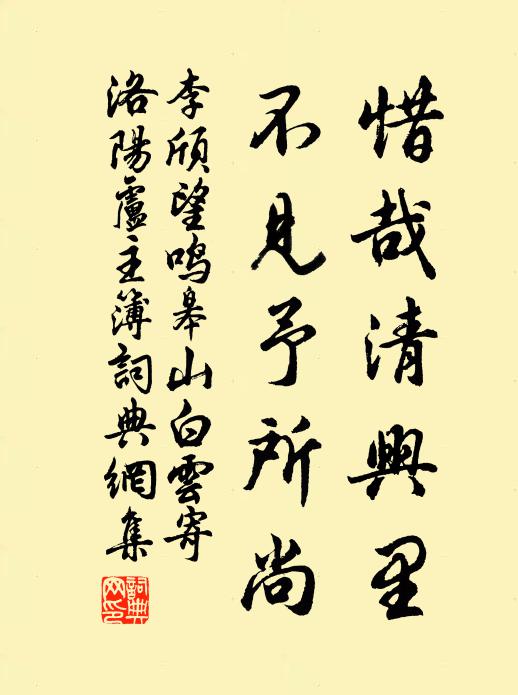 惜哉清興里
不見予所尚
李頎望鳴皋山白雲寄
洛陽盧主簿詞典網集
詞典网印